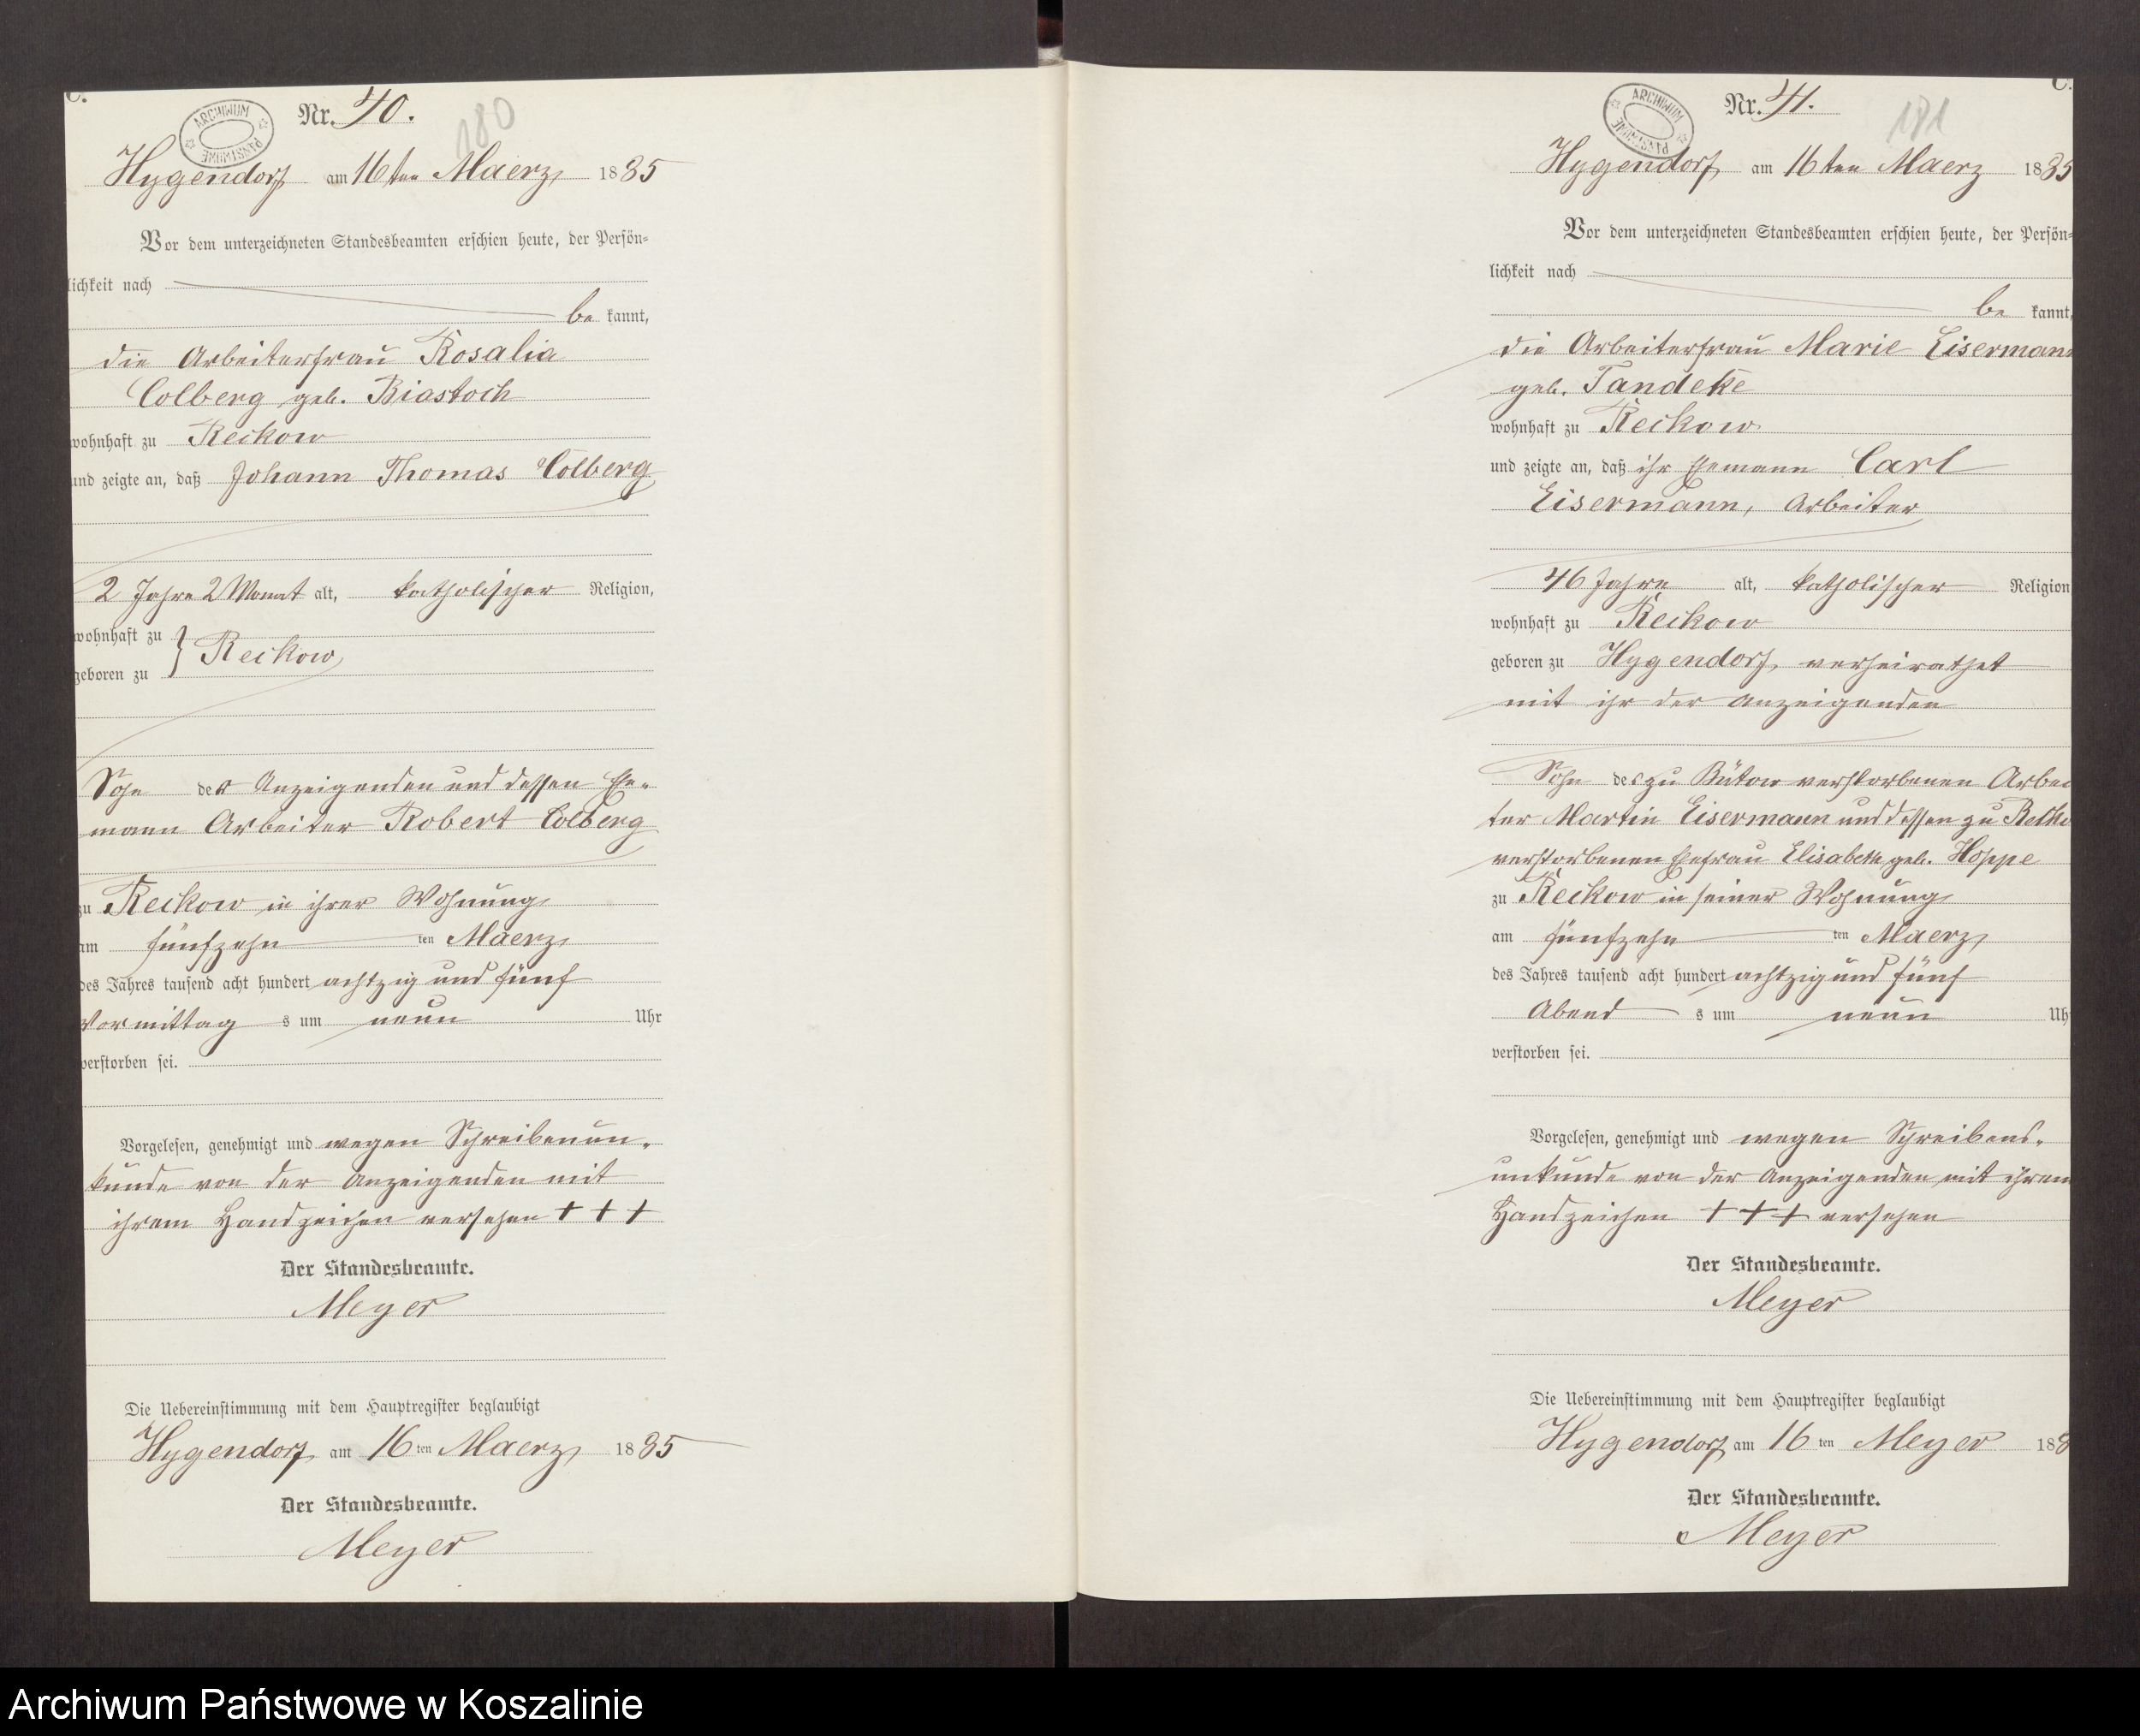 C.
ARCHIWUM PAŃSTWOWE
Nr. 40.
180
Hygendorf am 16ten Maerz 1885
Vor dem unterzeichneten Standesbeamten erschien heute, der Persön-
lichkeit nach
be kannt,
die Arbeiterfrau Rosalia
Colberg geb. Biastoch
wohnhaft zu Reckow
und zeigte an, daß Johann Thomas Colberg
2 Jahre 2 Monat alt, katholischer Religion,
wohnhaft zu
geboren zu } Reckow
Sohn der Anzeigenden und dessen Ehe-
mann Arbeiter Robert Colberg
zu Reckow in ihrer Wohnung
am fünfzehn ten Maerz
des Jahres tausend acht hundert achtzig und fünf
Vormittag s um neun Uhr
verstorben sei.
Vorgelesen, genehmigt und wegen Schreibenun-
kunde von der Anzeigenden mit
ihrem Handzeichen versehen + + +
Der Standesbeamte.
Meyer
Die Uebereinstimmung mit dem Hauptregister beglaubigt
Hygendorf am 16 ten Maerz 1885
Der Standesbeamte.
Meyer
C.
ARCHIWUM PAŃSTWOWE
Nr. 41.
181
Hygendorf am 16ten Maerz 1885
Vor dem unterzeichneten Standesbeamten erschien heute, der Persön-
lichkeit nach
be kannt,
die Arbeiterfrau Marie Eisermann
geb. Tandeke
wohnhaft zu Reckow
und zeigte an, daß ihr Ehemann Carl
Eisermann, Arbeiter
46 Jahre alt, katholischer Religion
wohnhaft zu Reckow
geboren zu Hygendorf, verheirathet
mit ihr der Anzeigenden
Sohn des zu Bütow verstorbenen Arbei
ter Martin Eisermann und dessen zu Recko
verstorbenen Ehefrau Elisabeth geb. Hoppe
zu Reckow in seiner Wohnung
am fünfzehn ten Maerz
des Jahres tausend acht hundert achtzig und fünf
Abend s um neun Uh
verstorben sei.
Vorgelesen, genehmigt und wegen Schreibens-
unkunde von der Anzeigenden mit ihrem
Handzeichen + + + versehen
Der Standesbeamte.
Meyer
Die Uebereinstimmung mit dem Hauptregister beglaubigt
Hygendorf am 16 ten Meyer 188
Der Standesbeamte.
Meyer
Archiwum Państwowe w Koszalinie